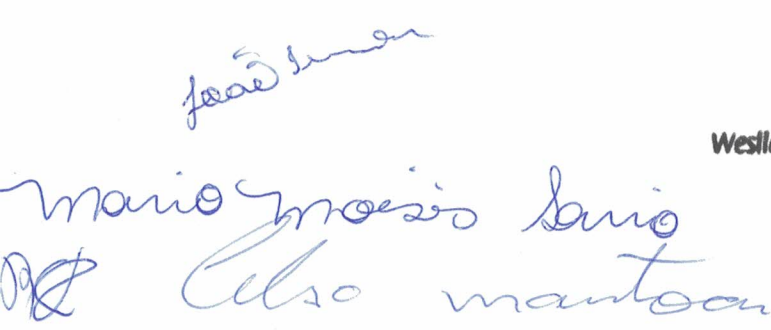 João
Westl
Mario Moisés Sario
Celso mantoan